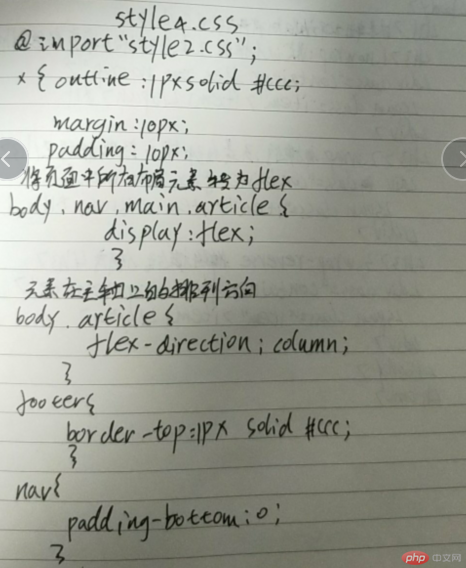 style4.css
@import "style2.css";
* { outline:1px solid #ccc;
margin:10px;
padding:10px;
将页面中所有布局元素转为flex
body,nav,main,article {
display:flex;
}
元素在主轴上的排列方向
body.article {
flex-direction; column;
}
footer{
border-top:1px solid #ccc;
}
nav{
padding-bottom:0;
}
php 中文网